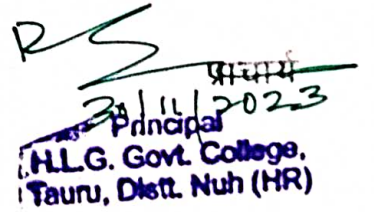 प्राचार्य
30/11/2023
Principal
H.L.G. Govt. College,
Tauru, Distt. Nuh (HR)